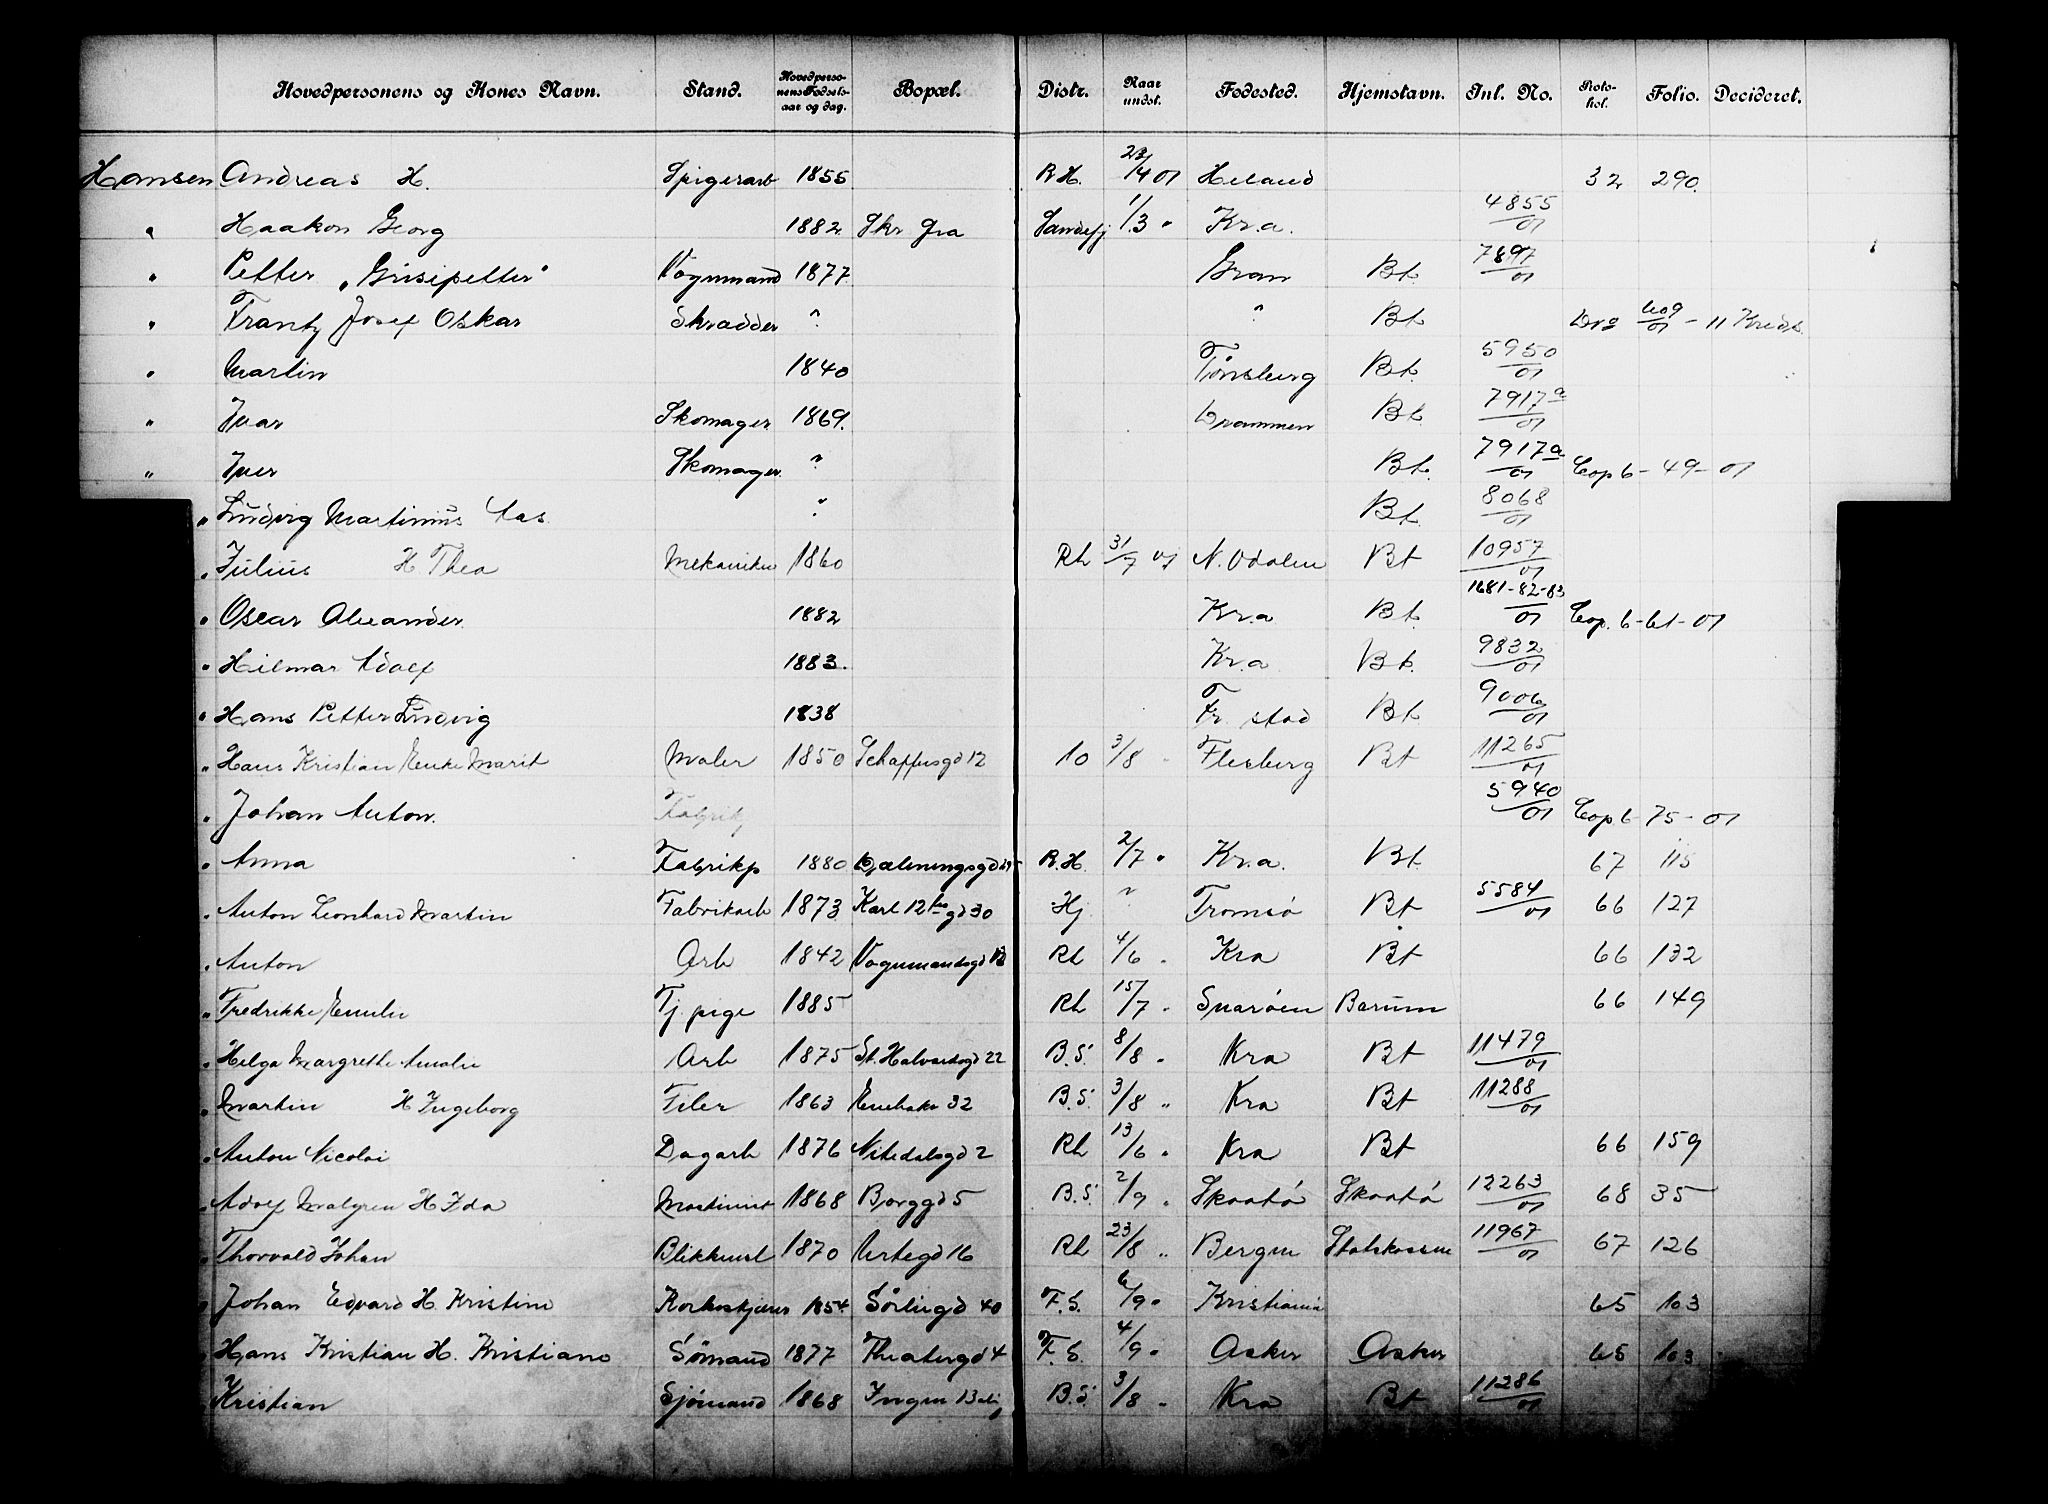 Hovedpersonens og Kones Navn. Stand. Hovedpersonens Fødselsaar og dag. Bopæl. Distr. Naar undst. Fødested. Hjemstavn. Inl. No. Protokol. Folio. Decideret.
Hansen Andreas H. Spigerarb 1855 R.H. 23/4 01 Heland 32 290.
" Haakon Georg 1882 Skr gra Sandefj 1/3 " Kr.a. 4855/01
" Petter "Grisepetter" Vognmand 1877. Gran Bt. 7897/01
" Frantz Josef Oskar Skrædder " " Bt 609/01 - 11 Kreds.
" Martin 1840 Tönsberg Bt. 5950/01
" Ivar Skomager 1869. Drammen Bt 7917a/01
" Iver Skomager. " Bt. 7917a/01 Cop 6 - 49 - 01
" Ludvig Martinius Aas " Bt. 8068/01
" Julius H Thea Mekaniker 1860 Rh 31/7 01 N. Odalen Bt 10957/01
" Oscar Alexander 1882 Kr.a Bt. 1681-82-83/01 Cop. 6-61-01
" Hilmar Adolf 1883. Kr.a Bt. 9832/01
" Hans Petter Ludvig 1838 Fr. stad Bt 9006/01
" Hans Kristian Enke Marit Maler 1850 Schaffersgd 12 10 3/8 " Flesberg Bt 11265/01
" Johan Anton. Fabrik 5940/01 Cop 6 - 75 - 01
" Anna Fabrikp 1880 R.H. 2/7 " Kr.a. Bt. 67 115
" Anton Leonhard Martin Fabrikarb 1873 Karl 12tes gd 30 Hj " Tromsø Bt 5584/01 66 127
" Anton Arb 1842 Vognmandsgd Rh 4/6 " Kra Bt 66 132
" Fredrikke Emilie Tj. pige 1885 Rh 15/7 " Snarøen Bærum 66 149
" Helga Margrethe Amalie Arb 1875 St. Halvardsgd 22 B.S. 8/8 " Kra Bt 11479/01
" Martin H Ingeborg Filer 1863 Enebakv 32 B.S. 3/8 " Kra Bt 11288/01
" Anton Nicolai Dagarb 1876 Nitedalsgd 2 Rh 13/6 " Kra Bt 66 159
" Adolf Malgren H Ida Maskinist 1868 Borggd 5 B.S. 2/9 " Skaatø Skaatø 12263/01 68 35
" Thorvald Johan Blikkensl 1870 Urtegd 16 Rh 23/8 " Bergen Statskassen 11967/01 67 126
" Johan Edvard H. Kristine Korkeskjærer 1854. Sörligd 40 F.S. 6/9 " Kristiania 65 103
" Hans Kristian H. Kristiane Sömand 1877 Theatergd 4 F.S. 4/9 " Asker Asker 65 103
Kristian Sjömand 1868 Ingen Bolig B.S. 3/8 " Kra Bt 11286/01